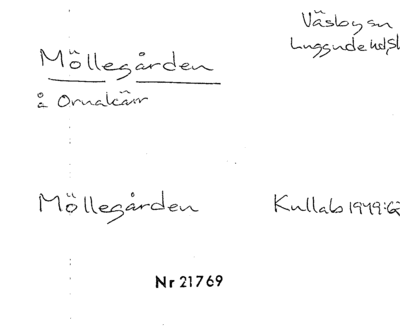 Väsby sn
Möllegården
Luggude hd
å Ornakärr
Möllegården Kullab 1949:62
Nr 21769